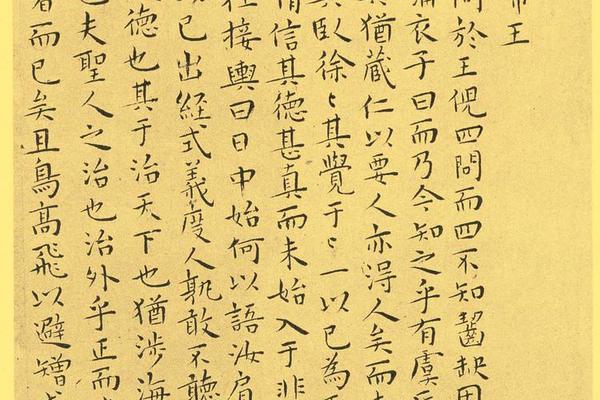 帝王
問於王倪四問而四不知齧缺因
蒲衣子曰而乃今知之乎有虞氏
其猶蔵仁以要人亦得人矣而未
其臥徐〻其覺于〻一以已為
情信其德甚真而未始入于非
狂接輿曰日中始何以語汝肩
以已出経式義度人孰敢不聽
德也其于治天下也猶涉海
夫聖人之治也治外乎正而
者而已矣且鳥高飛以避矰